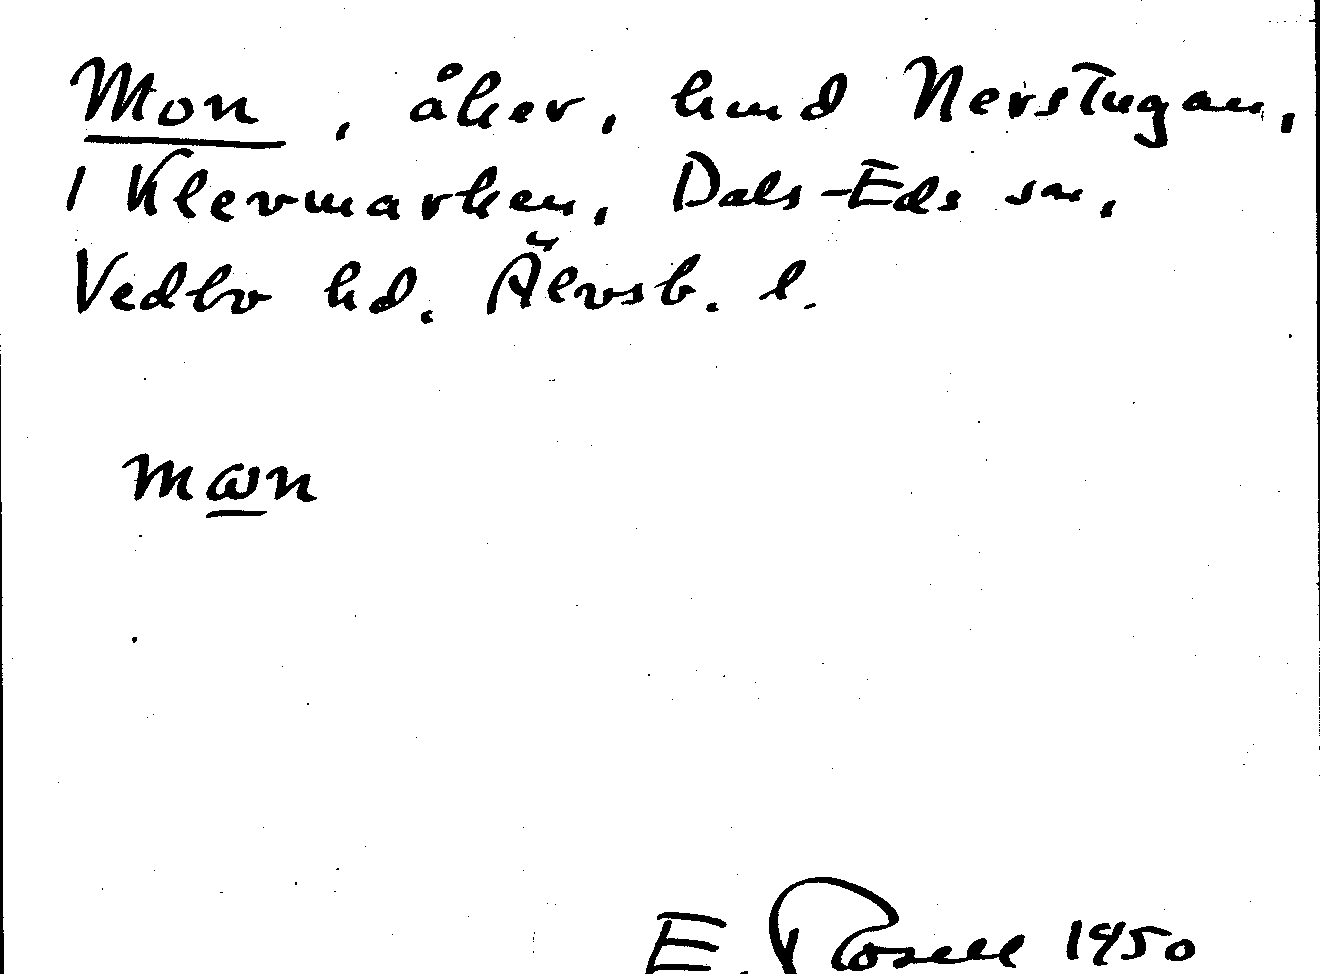 Mon, åker, hmd Nerstugan,
i Klevmarken, Dals-Eds sn,
Vedbo hd. Älvsb. l.
mωn
E. Rosell 1950